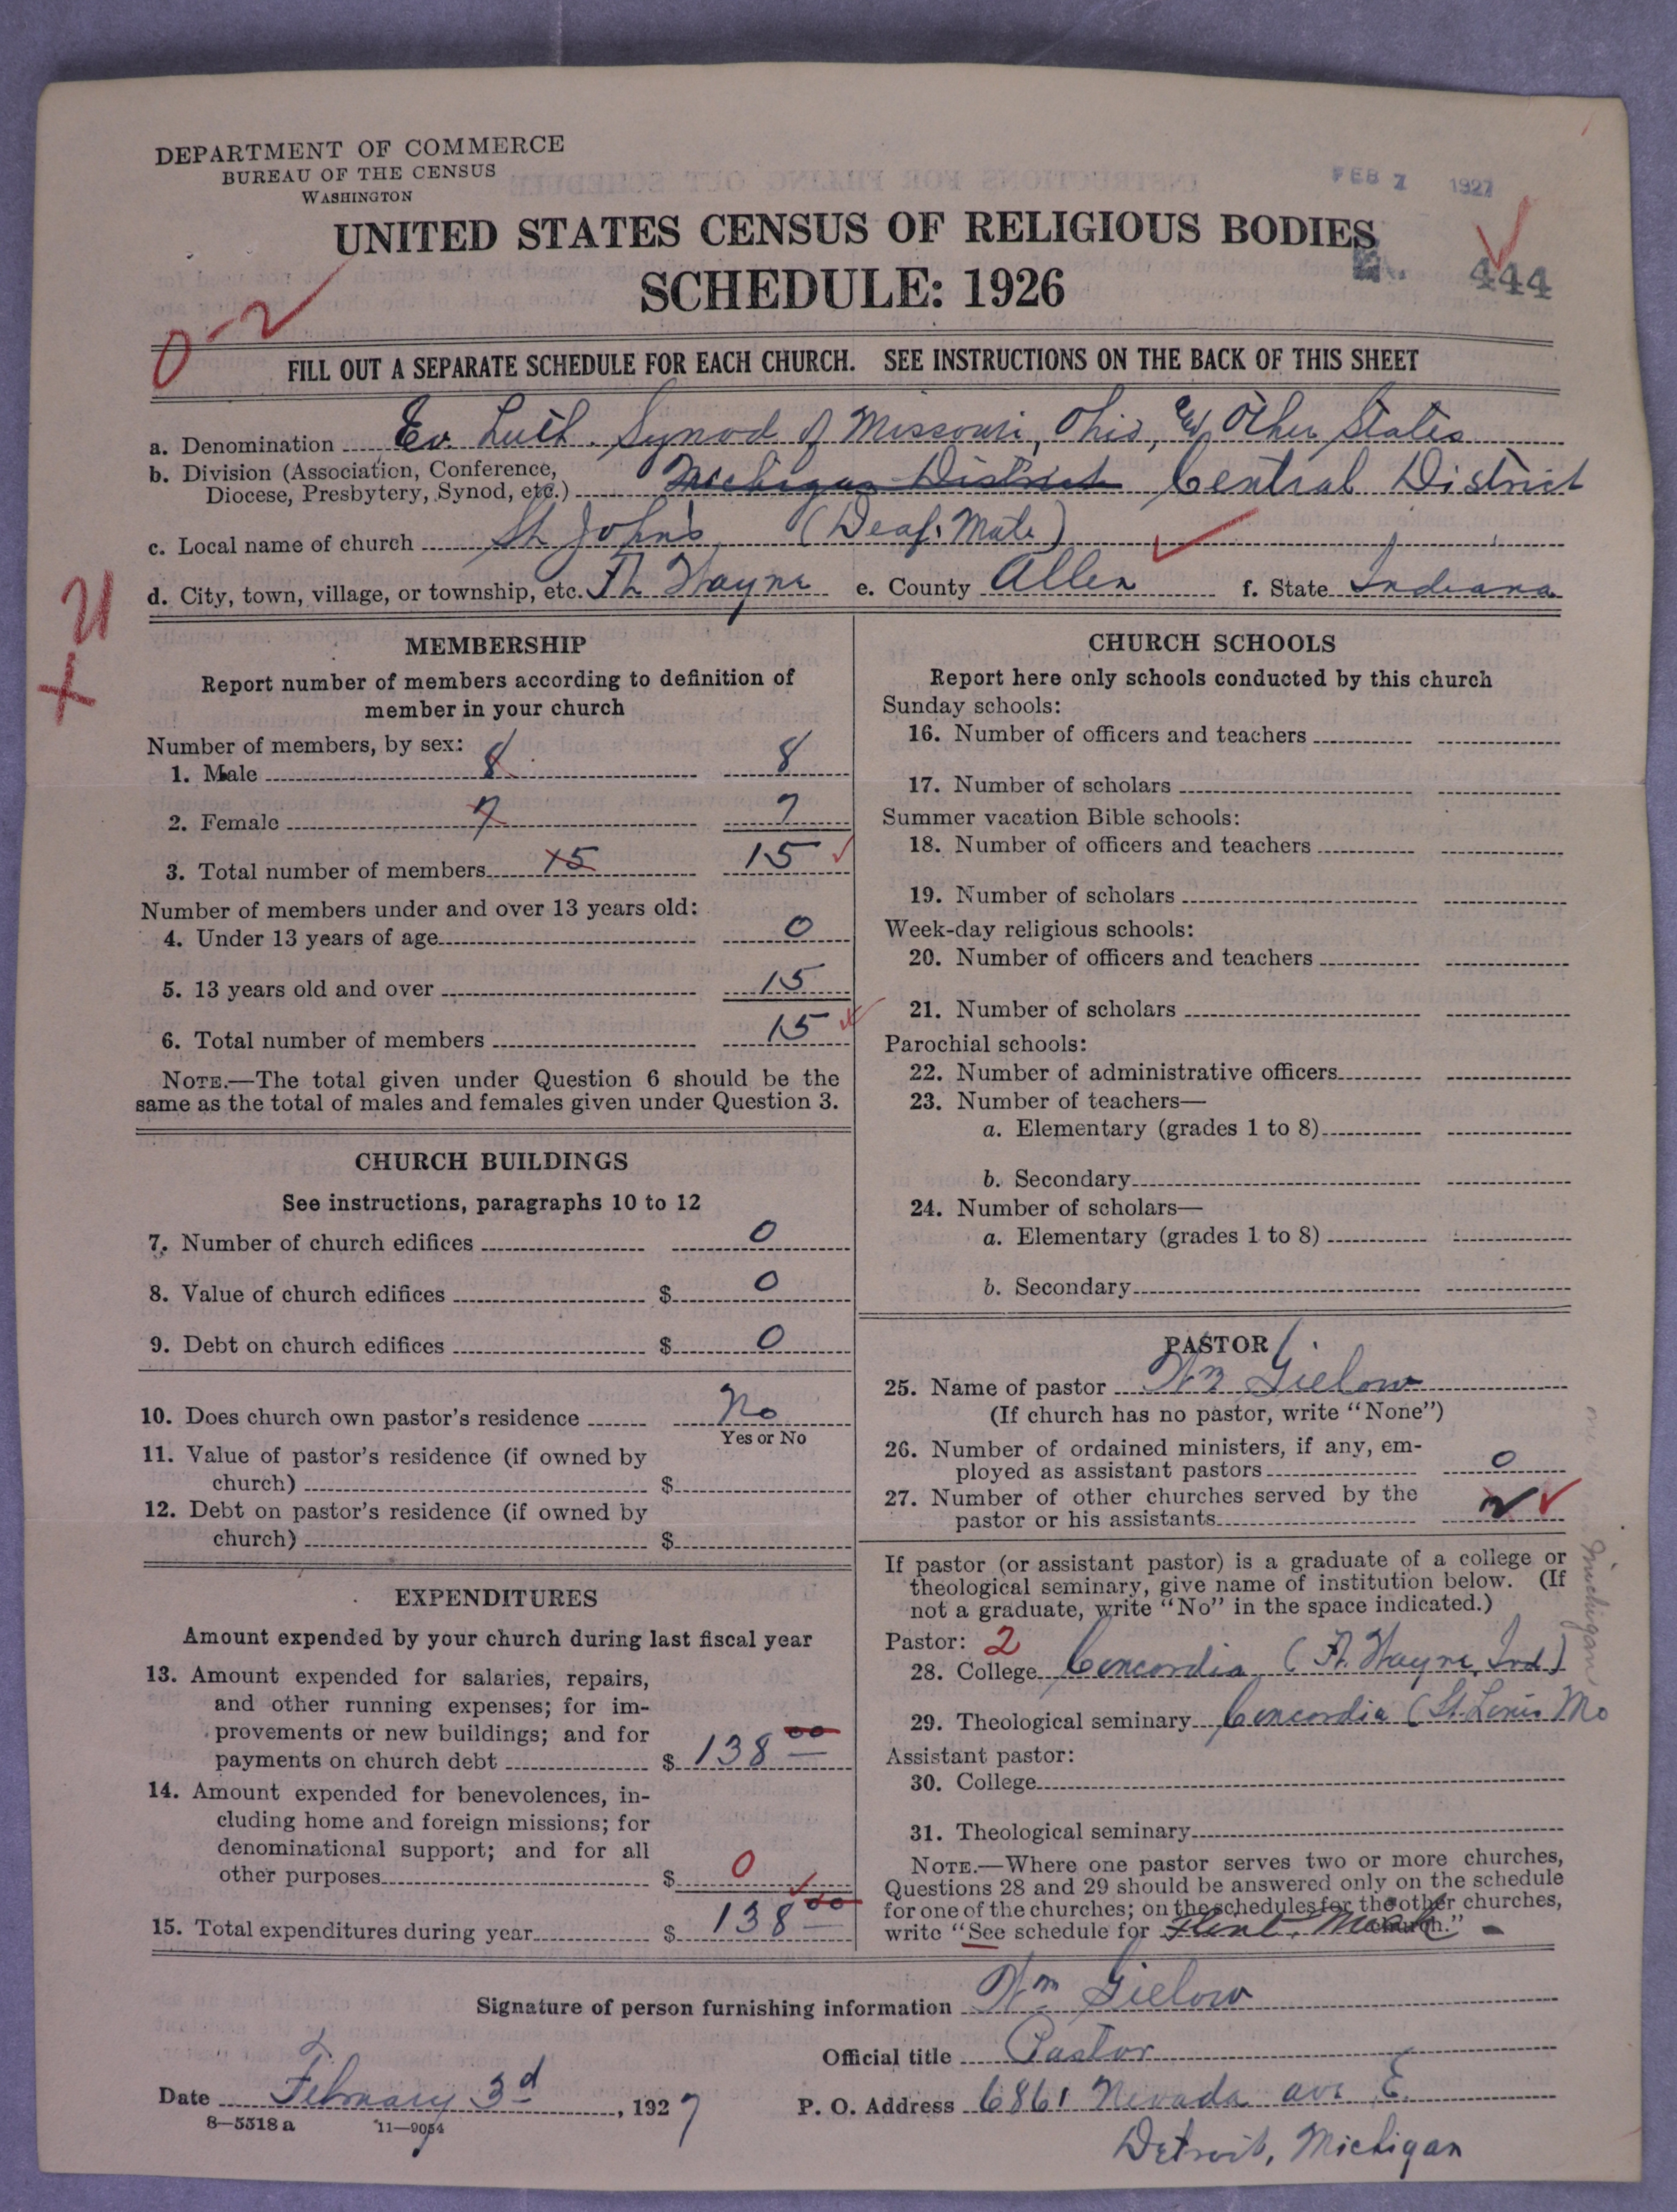 DEPARTMENT OF COMMERCE
BUREAU OF THE CENSUS
WASHINGTON
FEB 7 1927
UNITED STATES CENSUS OF RELIGIOUS BODIES
SCHEDULE: 1926
444
0-2
FILL OUT A SEPARATE SCHEDULE FOR EACH CHURCH. SEE INSTRUCTIONS ON THE BACK OF THIS SHEET
a. Denomination Ev. Luth. Synod of Missouri, Ohio, & Other States
b. Division (Association, Conference,
Diocese, Presbytery, Synod, etc.) Michigan District Central District
c. Local name of church St John's (Deaf-Mute)
d. City, town, village, or township, etc. Ft Wayne e. County Allen f. State Indiana
MEMBERSHIP
Report number of members according to definition of
member in your church
Number of members, by sex:
1. Male 8 8
2. Female 7 7
3. Total number of members 15 15
Number of members under and over 13 years old:
4. Under 13 years of age 0
5. 13 years old and over 15
6. Total number of members 15
NOTE.—The total given under Question 6 should be the
same as the total of males and females given under Question 3.
CHURCH BUILDINGS
See instructions, paragraphs 10 to 12
7. Number of church edifices 0
8. Value of church edifices $ 0
9. Debt on church edifices $ 0
10. Does church own pastor's residence No
Yes or No
11. Value of pastor's residence (if owned by
church) $
12. Debt on pastor's residence (if owned by
church) $
EXPENDITURES
Amount expended by your church during last fiscal year
13. Amount expended for salaries, repairs,
and other running expenses; for im-
provements or new buildings; and for
payments on church debt $ 138 00
14. Amount expended for benevolences, in-
cluding home and foreign missions; for
denominational support; and for all
other purposes $ 0
15. Total expenditures during year $ 138 00
CHURCH SCHOOLS
Report here only schools conducted by this church
Sunday schools:
16. Number of officers and teachers
17. Number of scholars
Summer vacation Bible schools:
18. Number of officers and teachers
19. Number of scholars
Week-day religious schools:
20. Number of officers and teachers
21. Number of scholars
Parochial schools:
22. Number of administrative officers
23. Number of teachers—
a. Elementary (grades 1 to 8)
b. Secondary
24. Number of scholars—
a. Elementary (grades 1 to 8)
b. Secondary
PASTOR
25. Name of pastor Wm Gielow
(If church has no pastor, write "None")
26. Number of ordained ministers, if any, em-
ployed as assistant pastors 0
27. Number of other churches served by the
pastor or his assistants
If pastor (or assistant pastor) is a graduate of a college or
theological seminary, give name of institution below. (If
not a graduate, write "No" in the space indicated.)
Pastor: 2
28. College Concordia (Ft. Wayne, Ind)
29. Theological seminary Concordia (St. Louis Mo
Assistant pastor:
30. College
31. Theological seminary
NOTE.—Where one pastor serves two or more churches,
Questions 28 and 29 should be answered only on the schedule
for one of the churches; on the schedules for the other churches,
write "See schedule for Flint, Mich church."
Michigan
Signature of person furnishing information Wm Gielow
Official title Pastor
Date February 3d, 1927 P. O. Address 6861 Nevada ave E.
8—5518 a 11—9054
Detroit, Michigan